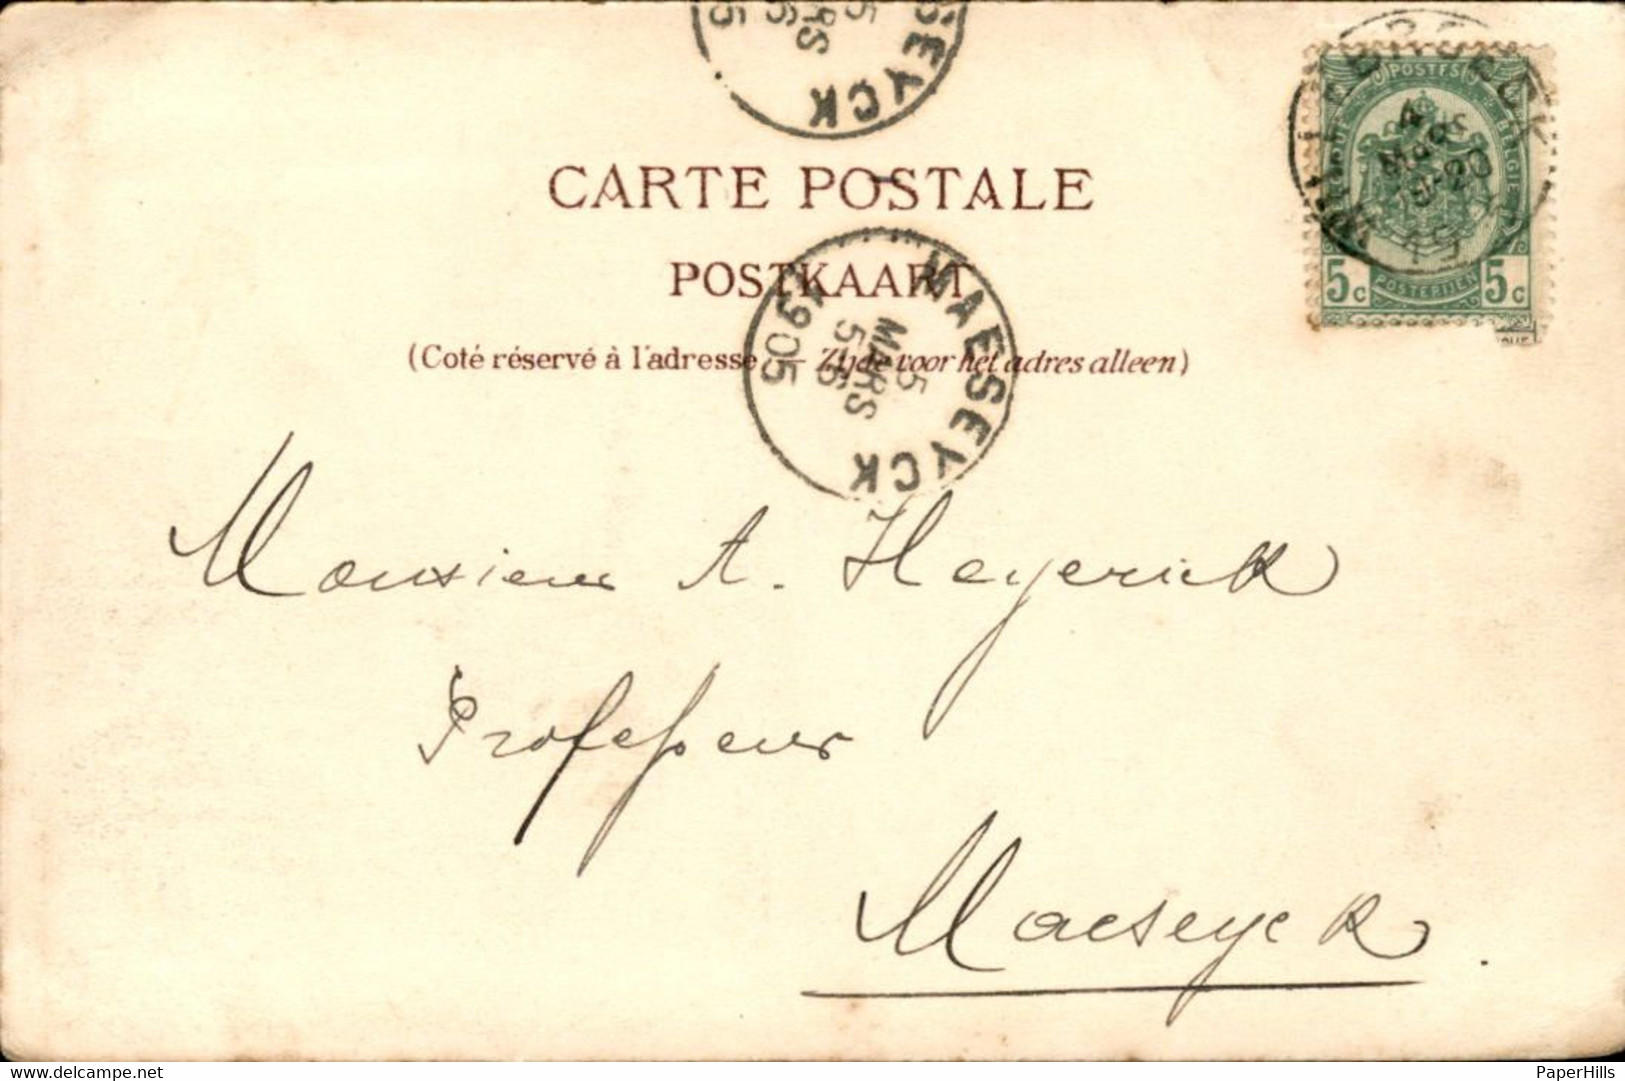 SEYCK
CARTE POSTALE
POSTKAART
(Coté réservé à l'adresse — Zijde voor het adres alleen)
MAESEYCK
5
MARS
5-6
1905
POSTES
BELGIE
5c POSTERIJEN 5c
Monsieur A. Heyerick
Professeur
Maeseyck.
delcampe.net
PaperHills